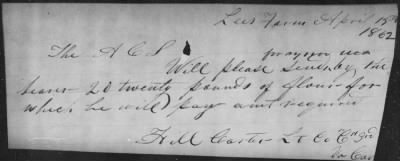 Lees Farm April 18th
1862
The A C S
Will please send by the
bearer 20 twenty pounds of flour for
which he will pay amt required
Hill Carter Lt Co 3rd
Va Cav